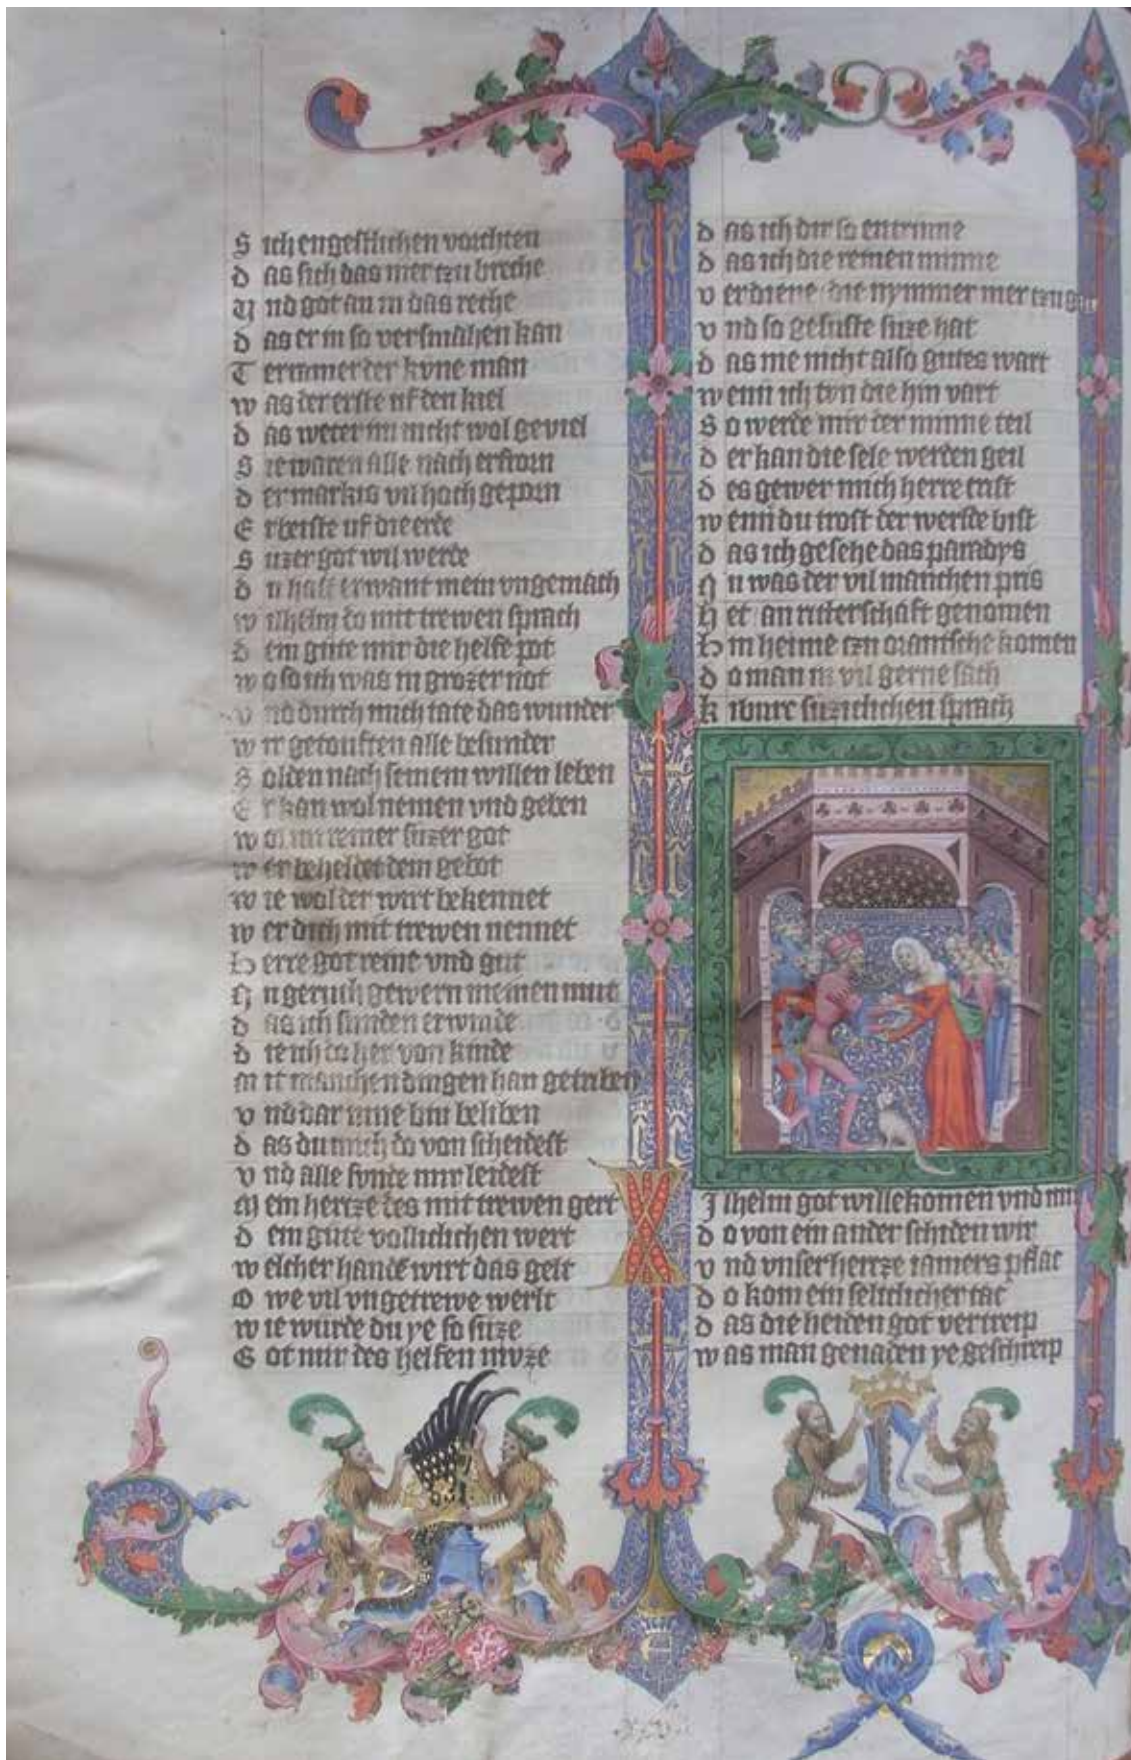 S ich engestlichen vorchten
d as sich das mer tzu breche
V nd got an in das reche
d as er in so versmahen kan
T erramer der kune man
w as der erste uf den kiel
d as weter im nicht wol geviel
S ie waren alle nach erfrorn
d er markis vil hoch geporn
E rbeiste uf die erde
S uzer got wil werde
d u hast erwant mein vngemach
w ilhelm do mit trewen sprach
d ein gute mir die helfe pot
w o so ich was in grozer not
v nd durch mich tate das wunder
w ir getouften alle besunder
S olden nach seinem willen leben
E r kan wol nemen vnd geben
w reiner suzer got
w er beheldet dein gebot
w ie wol der wirt bekennet
w er dich mit trewen nennet
H erre got reine vnd gut
N u geruch gewern meinen mut
d as ich sunden erwinde
d ie ich da her von kinde
M it manchen dingen han getriben
v nd dar inne bin beliben
d as du mich do von scheidest
v nd alle sunde mir leidest
M ein hertze des mit trewen gert
d ein gute volliclichen wert
w elcher hande wirt das gelt
O we vil vngetrewe werlt
w ie wurde du ye so suze
G ot mir des helfen muze
d as ich dir so entrinne
d as ich die reinen minne
v erdiene die nymmer mer
v nd so gesuste suze hat
d as me nicht also gutes wart
w enn ich tun die hin vart
S o werde mir der minne teil
d er kan die sele werden geil
d es gewer mich herre crist
w enn du trost der werlde bist
d as ich gesehe das paradys
N u was der vil manchen pris
H et an ritterschaft genomen
H in heime tzu orantsche komen
d o man in vil gerne sach
k iburc suziclichen sprach
W
Ilhelm got willekomen vnd mir
d o von ein ander schiden wir
v nd vnser hertze iamers pflac
d o kom ein seliclicher tac
d as die heiden got vertreip
w as man genaden ye geschreip